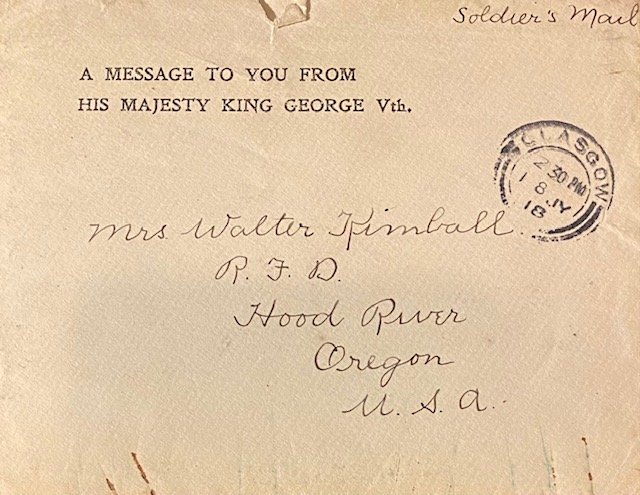 Soldier's Mail
A MESSAGE TO YOU FROM
HIS MAJESTY KING GEORGE Vth.
GLASGOW
2 30 PM
18 JY
18
Mrs Walter Kimball.
R. F. D.
Hood River
Oregon
U. S. A.